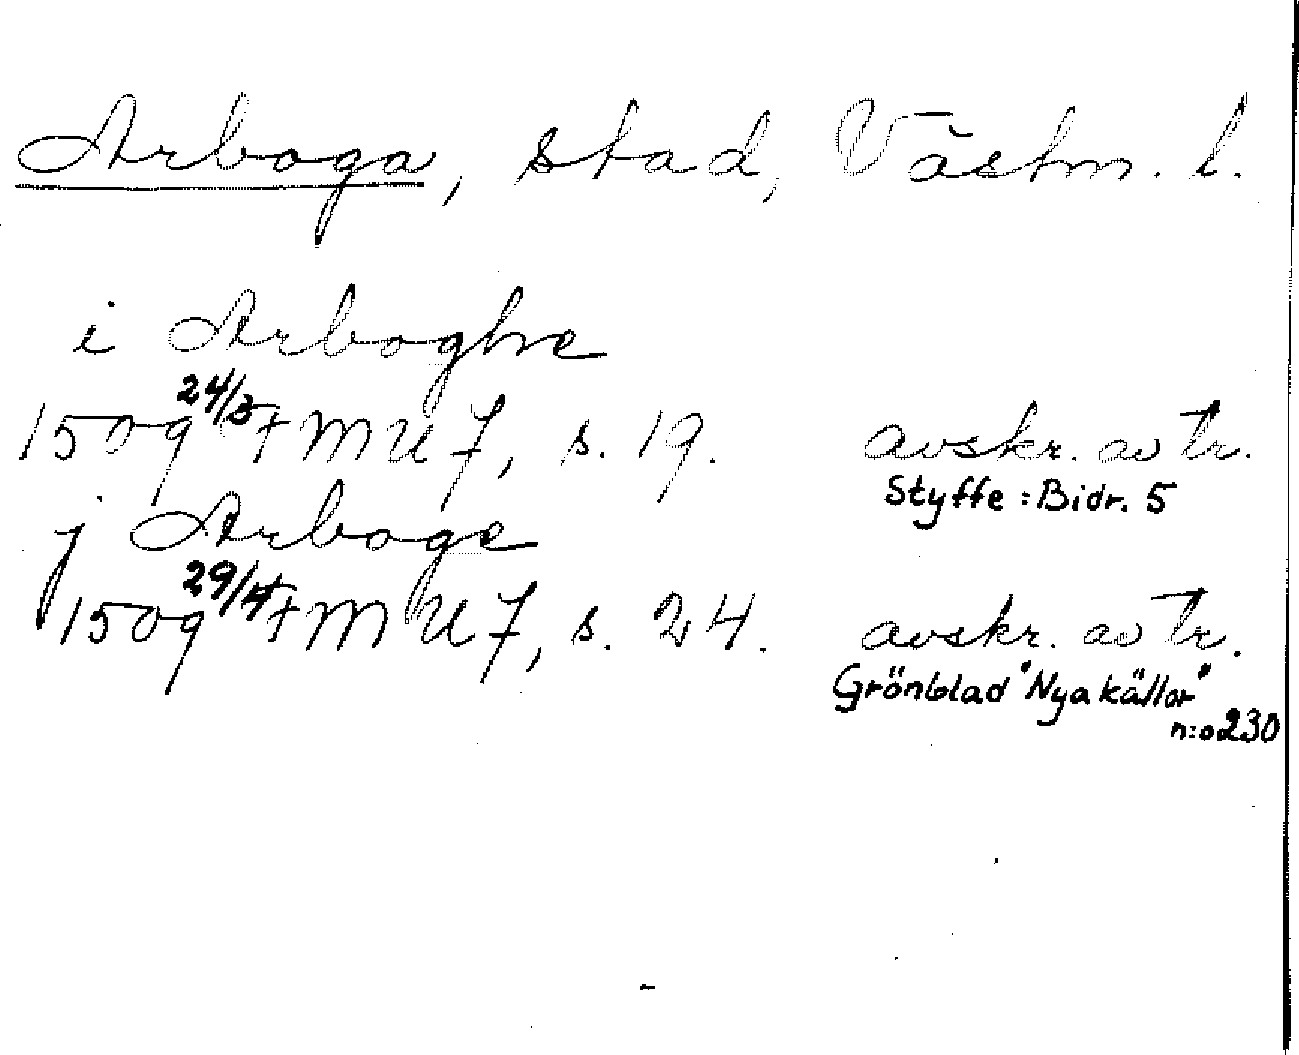 Arboga, stad, Västm. l.
i Arboghe
1509 24/3 + MU 7, s. 19. avskr. av tr.
Styffe: Bidr. 5
j Arboge
1509 29/4 + MU 7, s. 24. avskr. av tr.
Grönblad "Nya källor"
n:o 230